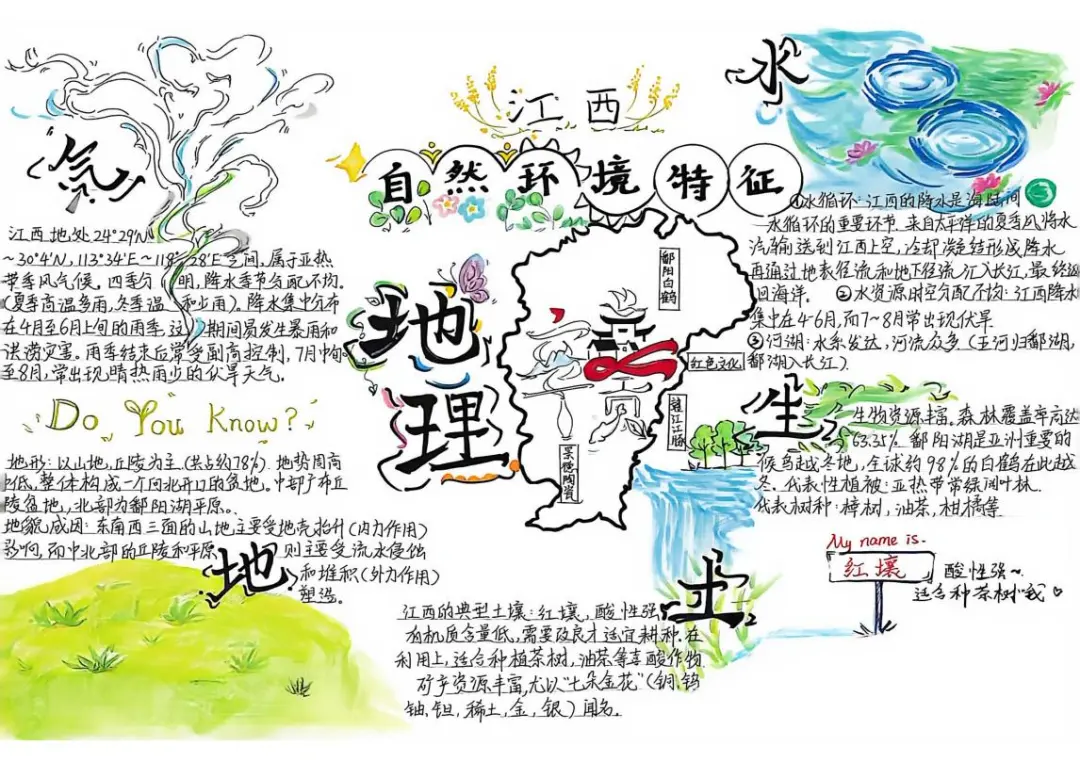 江西
自然环境特征
地理
鄱阳白鹤
红色文化
景德陶瓷
气
江西地处24°29′N
~30°4′N，113°34′E~118°28′E之间，属于亚热
带季风气候。四季分明，降水季节分配不均。
(夏季高温多雨，冬季温和少雨)。降水集中分布
在4月至6月上旬的雨季，这期间易发生暴雨和
洪涝灾害。雨季结束后常受副高控制，7月中旬
至8月，常出现晴热雨少的伏旱天气。
Do You Know?
地形：以山地，丘陵为主(共占约78%) 地势周高
中低，整体构成一个向北开口的盆地。中部广布丘
陵盆地，北部为鄱阳湖平原。
地貌成因：东南西三面的山地主要受地壳抬升(内力作用)
影响，而中北部的丘陵和平原则主要受流水侵蚀
和堆积(外力作用)
塑造。
地
水
①水循环：江西的降水是海陆间
水循环的重要环节，来自太平洋的夏季风将水
汽输送到江西上空，冷却凝结形成降水
再通过地表径流和地下径流，汇入长江，最终返
回海洋。②水资源时空分配不均：江西降水
集中在4-6月，而7~8月常出现伏旱
③河湖：水系发达，河流众多(五河归鄱湖，
鄱湖入长江)．
生
生物资源丰富，森林覆盖率高达
63.35%．鄱阳湖是亚洲重要的
候鸟越冬地，全球约98%的白鹤在此越
冬．代表性植被：亚热带常绿阔叶林．
代表树种：樟树，油茶，柑橘等
My name is.
红壤
酸性强~
适合种茶树哦
土
江西的典型土壤：红壤，酸性强，
有机质含量低，需要改良才适宜耕种．在
利用上，适合种植茶树，油茶等喜酸作物
矿产资源丰富，尤以“七朵金花”(铜、钨
铀、钽，稀土，金，银)闻名。